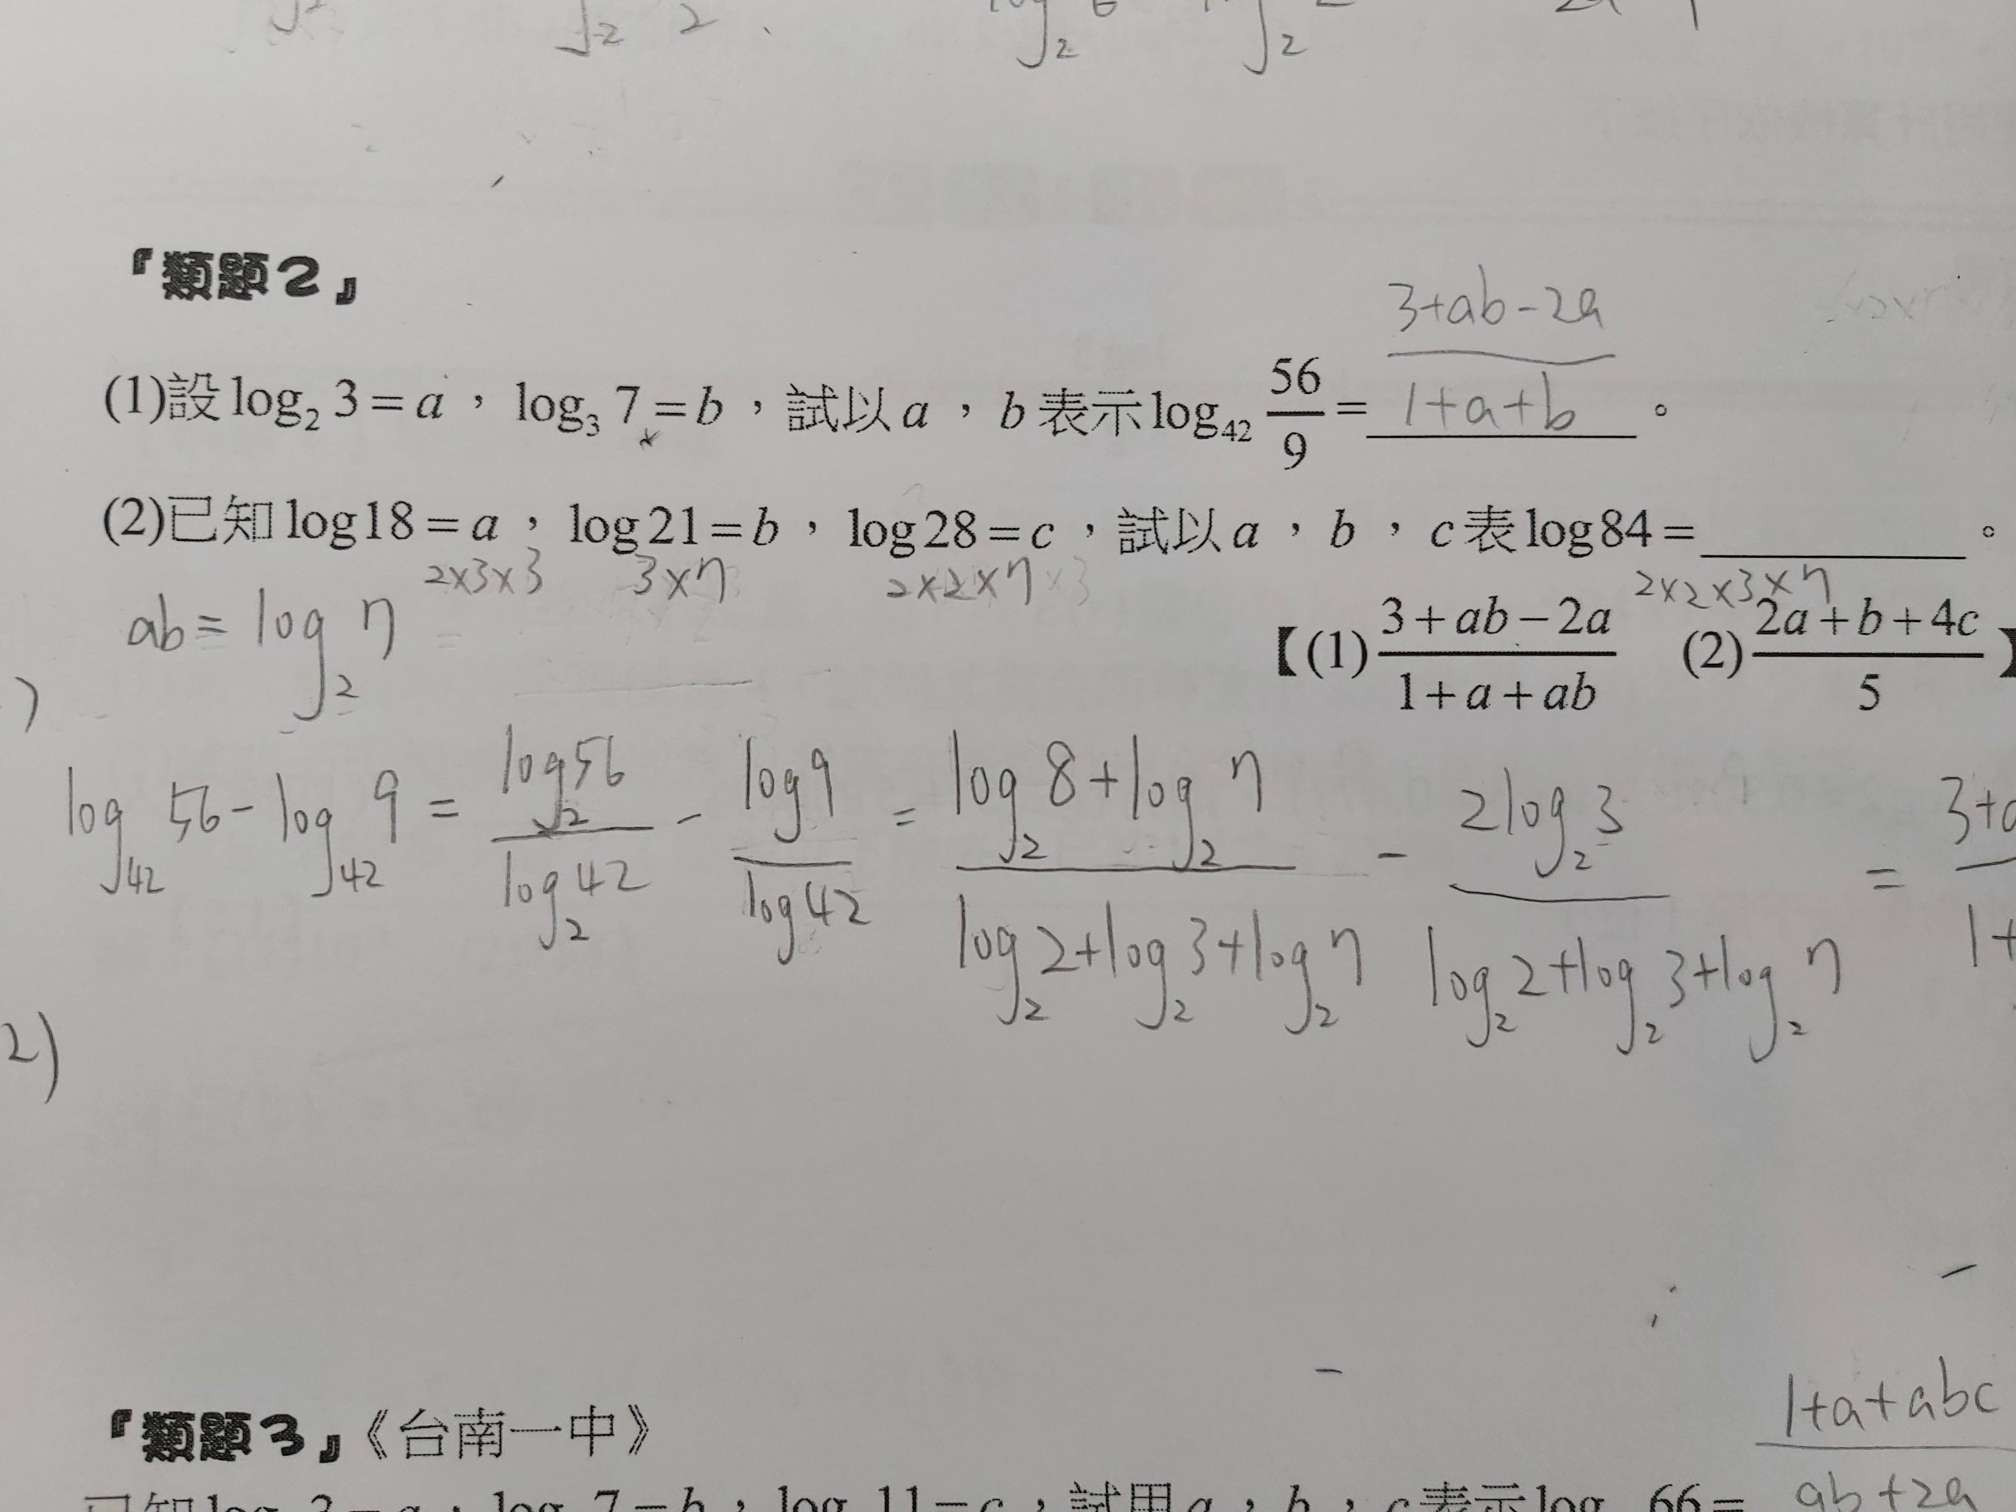 『類題2』
3+ab-2a
(1)設 log₂ 3 = a ， log₃ 7 = b ，試以 a ， b 表示 log₄₂ 56/9 = 1+a+b 。
(2)已知 log 18 = a ， log 21 = b ， log 28 = c ，試以 a ， b ， c 表 log 84 = 。
2×3×3 3×7 2×2×7 2×2×3×7
ab = log₂ 7
【(1) (3+ab-2a)/(1+a+ab) (2) (2a+b+4c)/5 】
log₄₂ 56 - log₄₂ 9 = log₂ 56 / log₂ 42 - log 9 / log 42 = (log₂ 8 + log₂ 7)/(log₂ 2 + log₂ 3 + log₂ 7) - 2 log₂ 3 / (log₂ 2 + log₂ 3 + log₂ 7) =
2)
1+a+abc
『類題3』《台南一中》
ab+2a